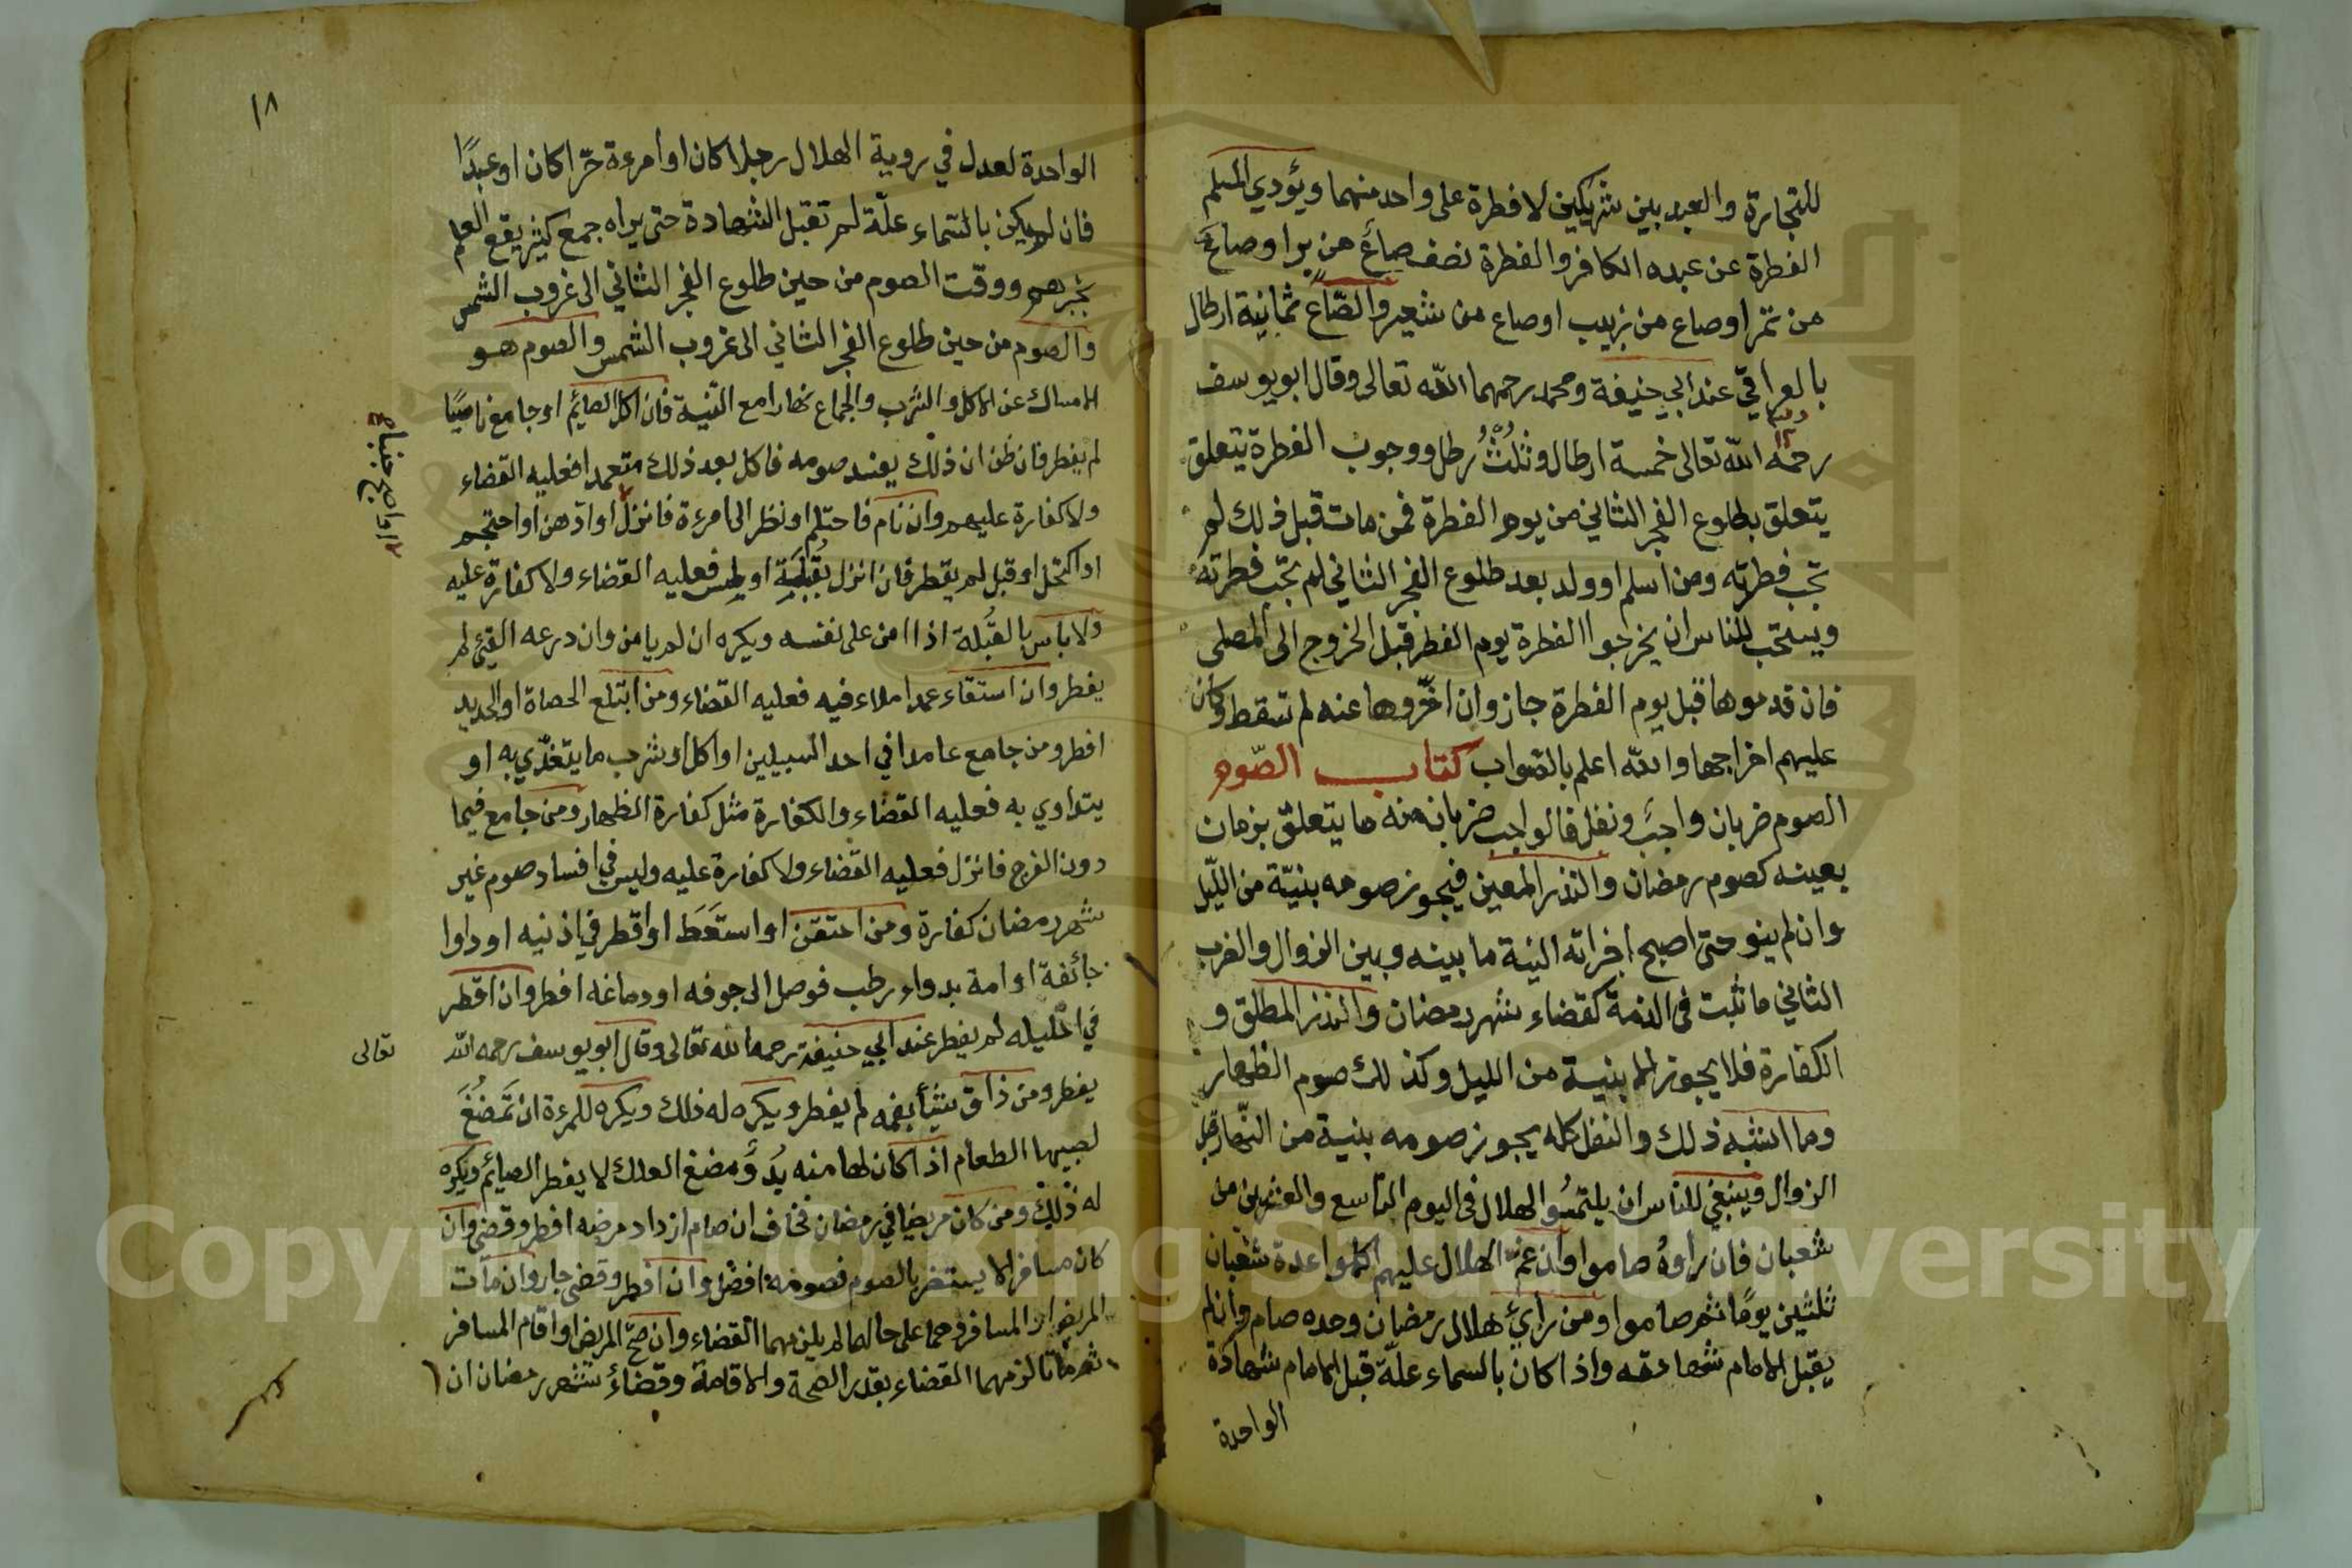 للتجارة والعبد بين شريكين لا فطرة على واحد منهما ويؤدي المسلم
الفطرة عن عبده الكافر والفطرة نصف صاع من برا وصاع
من تمر اوصاع من زبيب اوصاع من شعير والصّاع ثمانية ارطال
بالعراقي عند ابي حنيفة ومحمد رحمهما الله تعالى وقال ابو يوسف
رحمه الله تعالى خمسة ارطال وثلث رطل ووجوب الفطرة يتعلق
يتعلق بطلوع الفجر الثاني من يوم الفطرة فمن مات قبل ذلك لم
تجب فطرته ومن اسلم او ولد بعد طلوع الفجر الثاني لم تجب فطرته
ويستحب للناس ان يخرجوا الفطرة يوم الفطر قبل الخروج الى المصلى
فان قدموها قبل يوم الفطرة جاز وان اخّروها عنه لم تسقط وكان
عليهم اخراجها والله اعلم بالصّواب كتاب الصّوم
الصوم ضربان واجب ونفل فالواجب ضربان منه ما يتعلق بزمان
بعينه كصوم رمضان والنذر المعين فيجوز صومه بنيّة من اللّيل
وان لم ينو حتى اصبح اجزاته النية ما بينه وبين الزوال والضرب
الثاني ما ثبت في الذمة كقضاء شهر رمضان والنذر المطلق و
الكفارة فلا يجوز الا بنية من الليل وكذلك صوم الظهار
وما اشبه ذلك والنفل كله يجوز صومه بنية من النّهار قبل
الزوال وينبغي للناس ان يلتمسوا الهلال في اليوم التاسع والعشرين من
شعبان فان راوه صاموا وان غم الهلال عليهم اكملوا عدة شعبان
ثلثين يومًا ثم صاموا ومن راي هلال رمضان وحده صام وان لم
يقبل الامام شهادته واذا كان بالسماء علّة قبل الامام شهادة
الواحدة
١٨
الواحدة لعدل في روية الهلال رجلا كان او امرءة حرّا كان او عبدًا
فان لم يكن بالسّماء علّة لم تقبل الشهادة حتى يراه جمع كثير يقع العلم
بخبرهم ووقت الصوم من حين طلوع الفجر الثاني الى غروب الشمس
والصوم من حين طلوع الفجر الثاني الى غروب الشمس والصوم هو
الامساك عن الاكل والشرب والجماع نهارا مع النية فان اكل الصائم او جامع ناسيًا
لم يفطر فان ظن ان ذلك يفسد صومه فاكل بعد ذلك متعمدا فعليه القضاء
ولا كفارة عليهم وان نام فاحتلم او نظر الى امرءة فانزل او ادهن او احتجم
او اكتحل او قبل لم يفطر فان انزل بقبلة او لمس فعليه القضاء ولا كفارة عليه
ولا باس بالقُبلة اذا امن على نفسه ويكره ان لم يا من وان درعه القئ لم
يفطر وان استقاء عمدا ملاء فيه فعليه القضاء ومن ابتلع الحصاة او الحديد
افطر ومن جامع عامدا في احد السبيلين او اكل او شرب ما يتغذّي به او
يتداوي به فعليه القضاء والكفارة مثل كفارة الظهار ومن جامع فيما
دون الفرج فانزل فعليه القضاء ولا كفارة عليه وليس في افساد صوم غير
شهر رمضان كفارة ومن احتقن او استعط او اقطر في اذنيه او داوا
جائفة او امة بدواء رطب فوصل الى جوفه او دماغه افطر وان اقطر
في احليله لم يفطر عند ابي حنيفة رحمه الله تعالى وقال ابو يوسف رحمه الله
تعالى
يفطر ومن ذاق شيأ بفمه لم يفطر ويكره له ذلك ويكره للمرءة ان تمضغ
لصبيها الطعام اذا كان لها منه بد ومضغ العلك لا يفطر الصائم ويكره
له ذلك ومن كان مريضا في رمضان فخاف ان صام ازداد مرضه افطر وقضى وان
كان مسافرا لا يستضر بالصوم فصومه افضل وان افطر وقضى جاز وان مات
المريض او المسافر وهما على حالهما لم يلزمهما القضاء وان صح المريض او اقام المسافر
ثم ماتا لزمهما القضاء بقدر الصحة والاقامة وقضاء شهر رمضان ان
Copyright © King Saud University